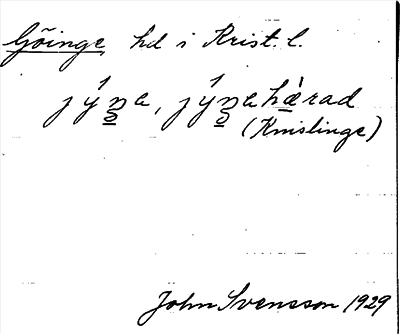 Göinge, hd i Krist. l.
jýn̲e, jýn̲ehæ̀rad
(Knislinge)
John Svensson 1929